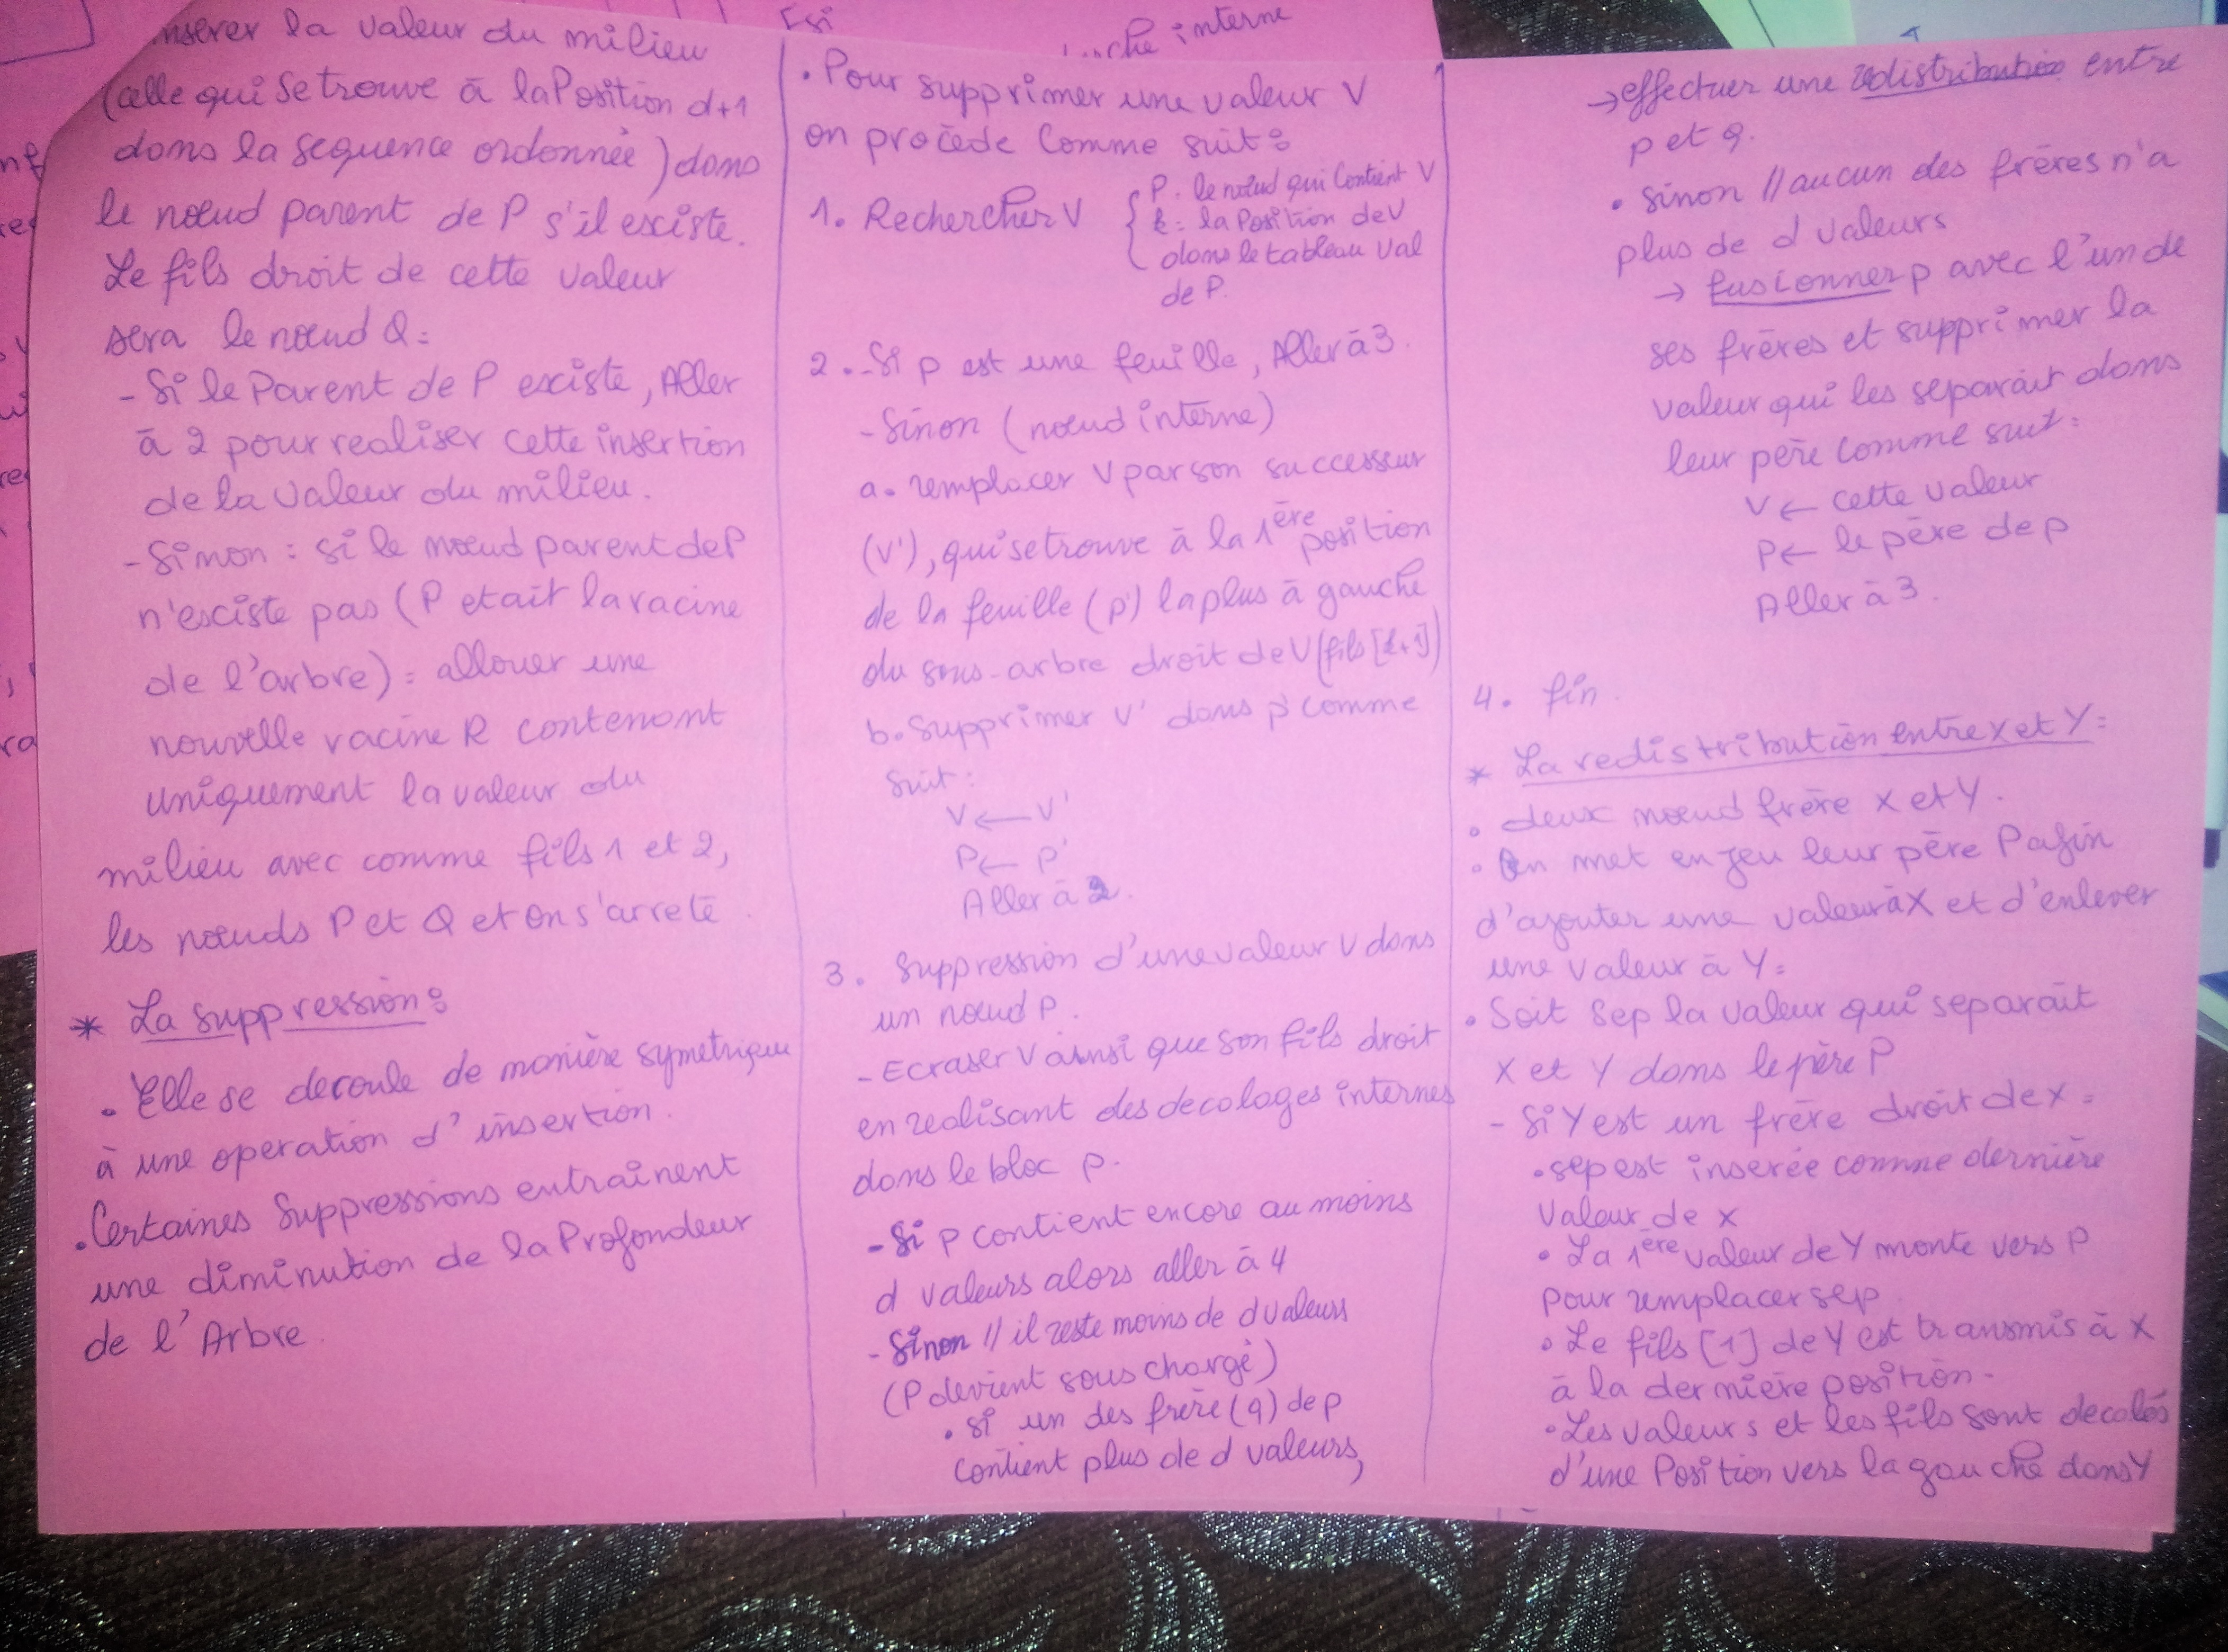 insérer la valeur du milieu
(celle qui se trouve à la Position d+1
dans la sequence ordonnée) dans
le nœud parent de P s'il existe.
Le fils droit de cette valeur
sera le nœud Q:
- Si le Parent de P existe, Aller
à 2 pour realiser cette insertion
de la valeur du milieu.
- Sinon : si le nœud parent de P
n'existe pas (P etait la racine
de l'arbre) : allouer une
nouvelle racine R contenant
uniquement la valeur du
milieu avec comme fils 1 et 2,
les nœuds P et Q et on s'arrete.
* La suppression :
• Elle se deroule de manière symetrique
à une operation d'insertion.
• Certaines Suppressions entraînent
une diminution de la Profondeur
de l'Arbre.
[si
interne
• Pour supprimer une valeur V
on procède Comme suit :
1. Rechercher V { P. le nœud qui Contient V
k: la Position de V
dans le tableau val
de P.
2. - Si p est une feuille, Aller à 3.
- Sinon (nœud interne)
a. remplacer V par son successeur
(v'), qui se trouve à la 1ère position
de la feuille (p') la plus à gauche
du sous-arbre droit de V (fils [k+1])
b. Supprimer v' dans p' comme
suit :
V ← V'
P ← P'
Aller à 2.
3. Suppression d'une valeur v dans
un nœud P.
- Ecraser V ainsi que son fils droit
en realisant des decalages internes
dans le bloc p.
- Si p contient encore au moins
d valeurs alors aller à 4
- Sinon // il reste moins de d valeurs
(P devient sous chargé)
• si un des frère (q) de p
contient plus de d valeurs,
→ effectuer une redistribution entre
p et q.
• sinon // aucun des frères n'a
plus de d valeurs
→ fusionner p avec l'un de
ses frères et supprimer la
valeur qui les separait dans
leur père comme suit :
V ← cette valeur
P ← le père de p
Aller à 3.
4. fin.
* La redistribution entre X et Y :
• deux nœud frère X et Y.
• On met en jeu leur père P afin
d'ajouter une valeur à X et d'enlever
une valeur à Y :
• Soit Sep la valeur qui separait
X et Y dans le père P
- Si Y est un frère droit de X :
• sep est inserée comme dernière
Valeur de X
• La 1ère valeur de Y monte vers P
pour remplacer sep.
• Le fils [1] de Y est transmis à X
à la dernière position.
• Les valeurs et les fils sont decalés
d'une Position vers la gauche dans Y